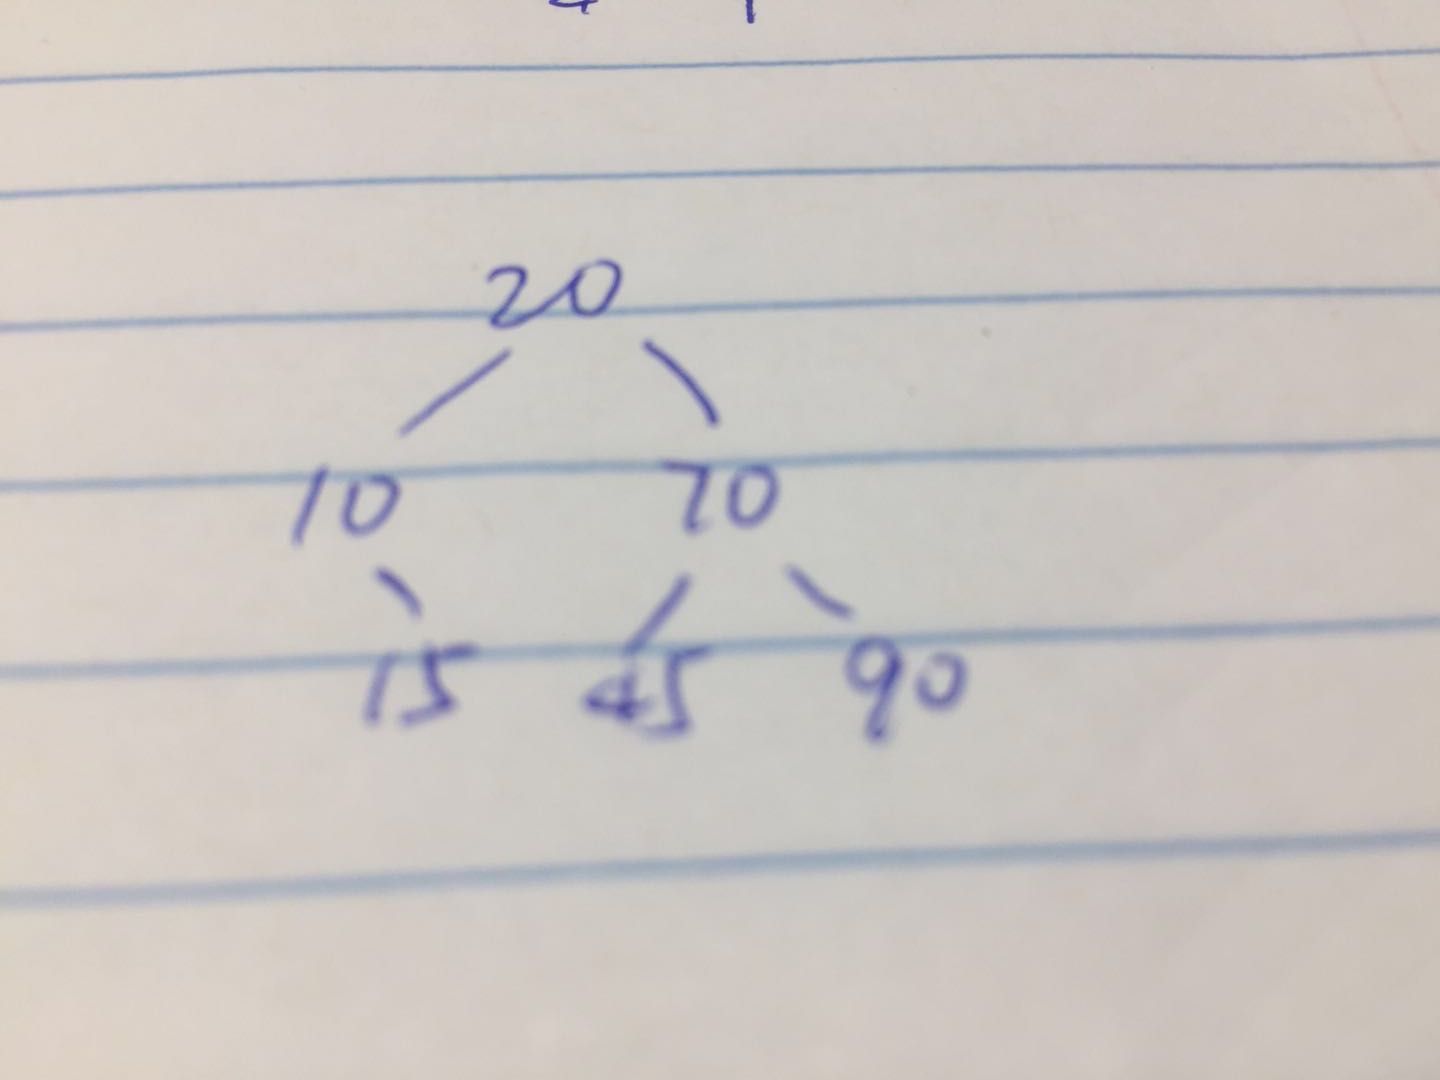 20
10 70
15 45 90